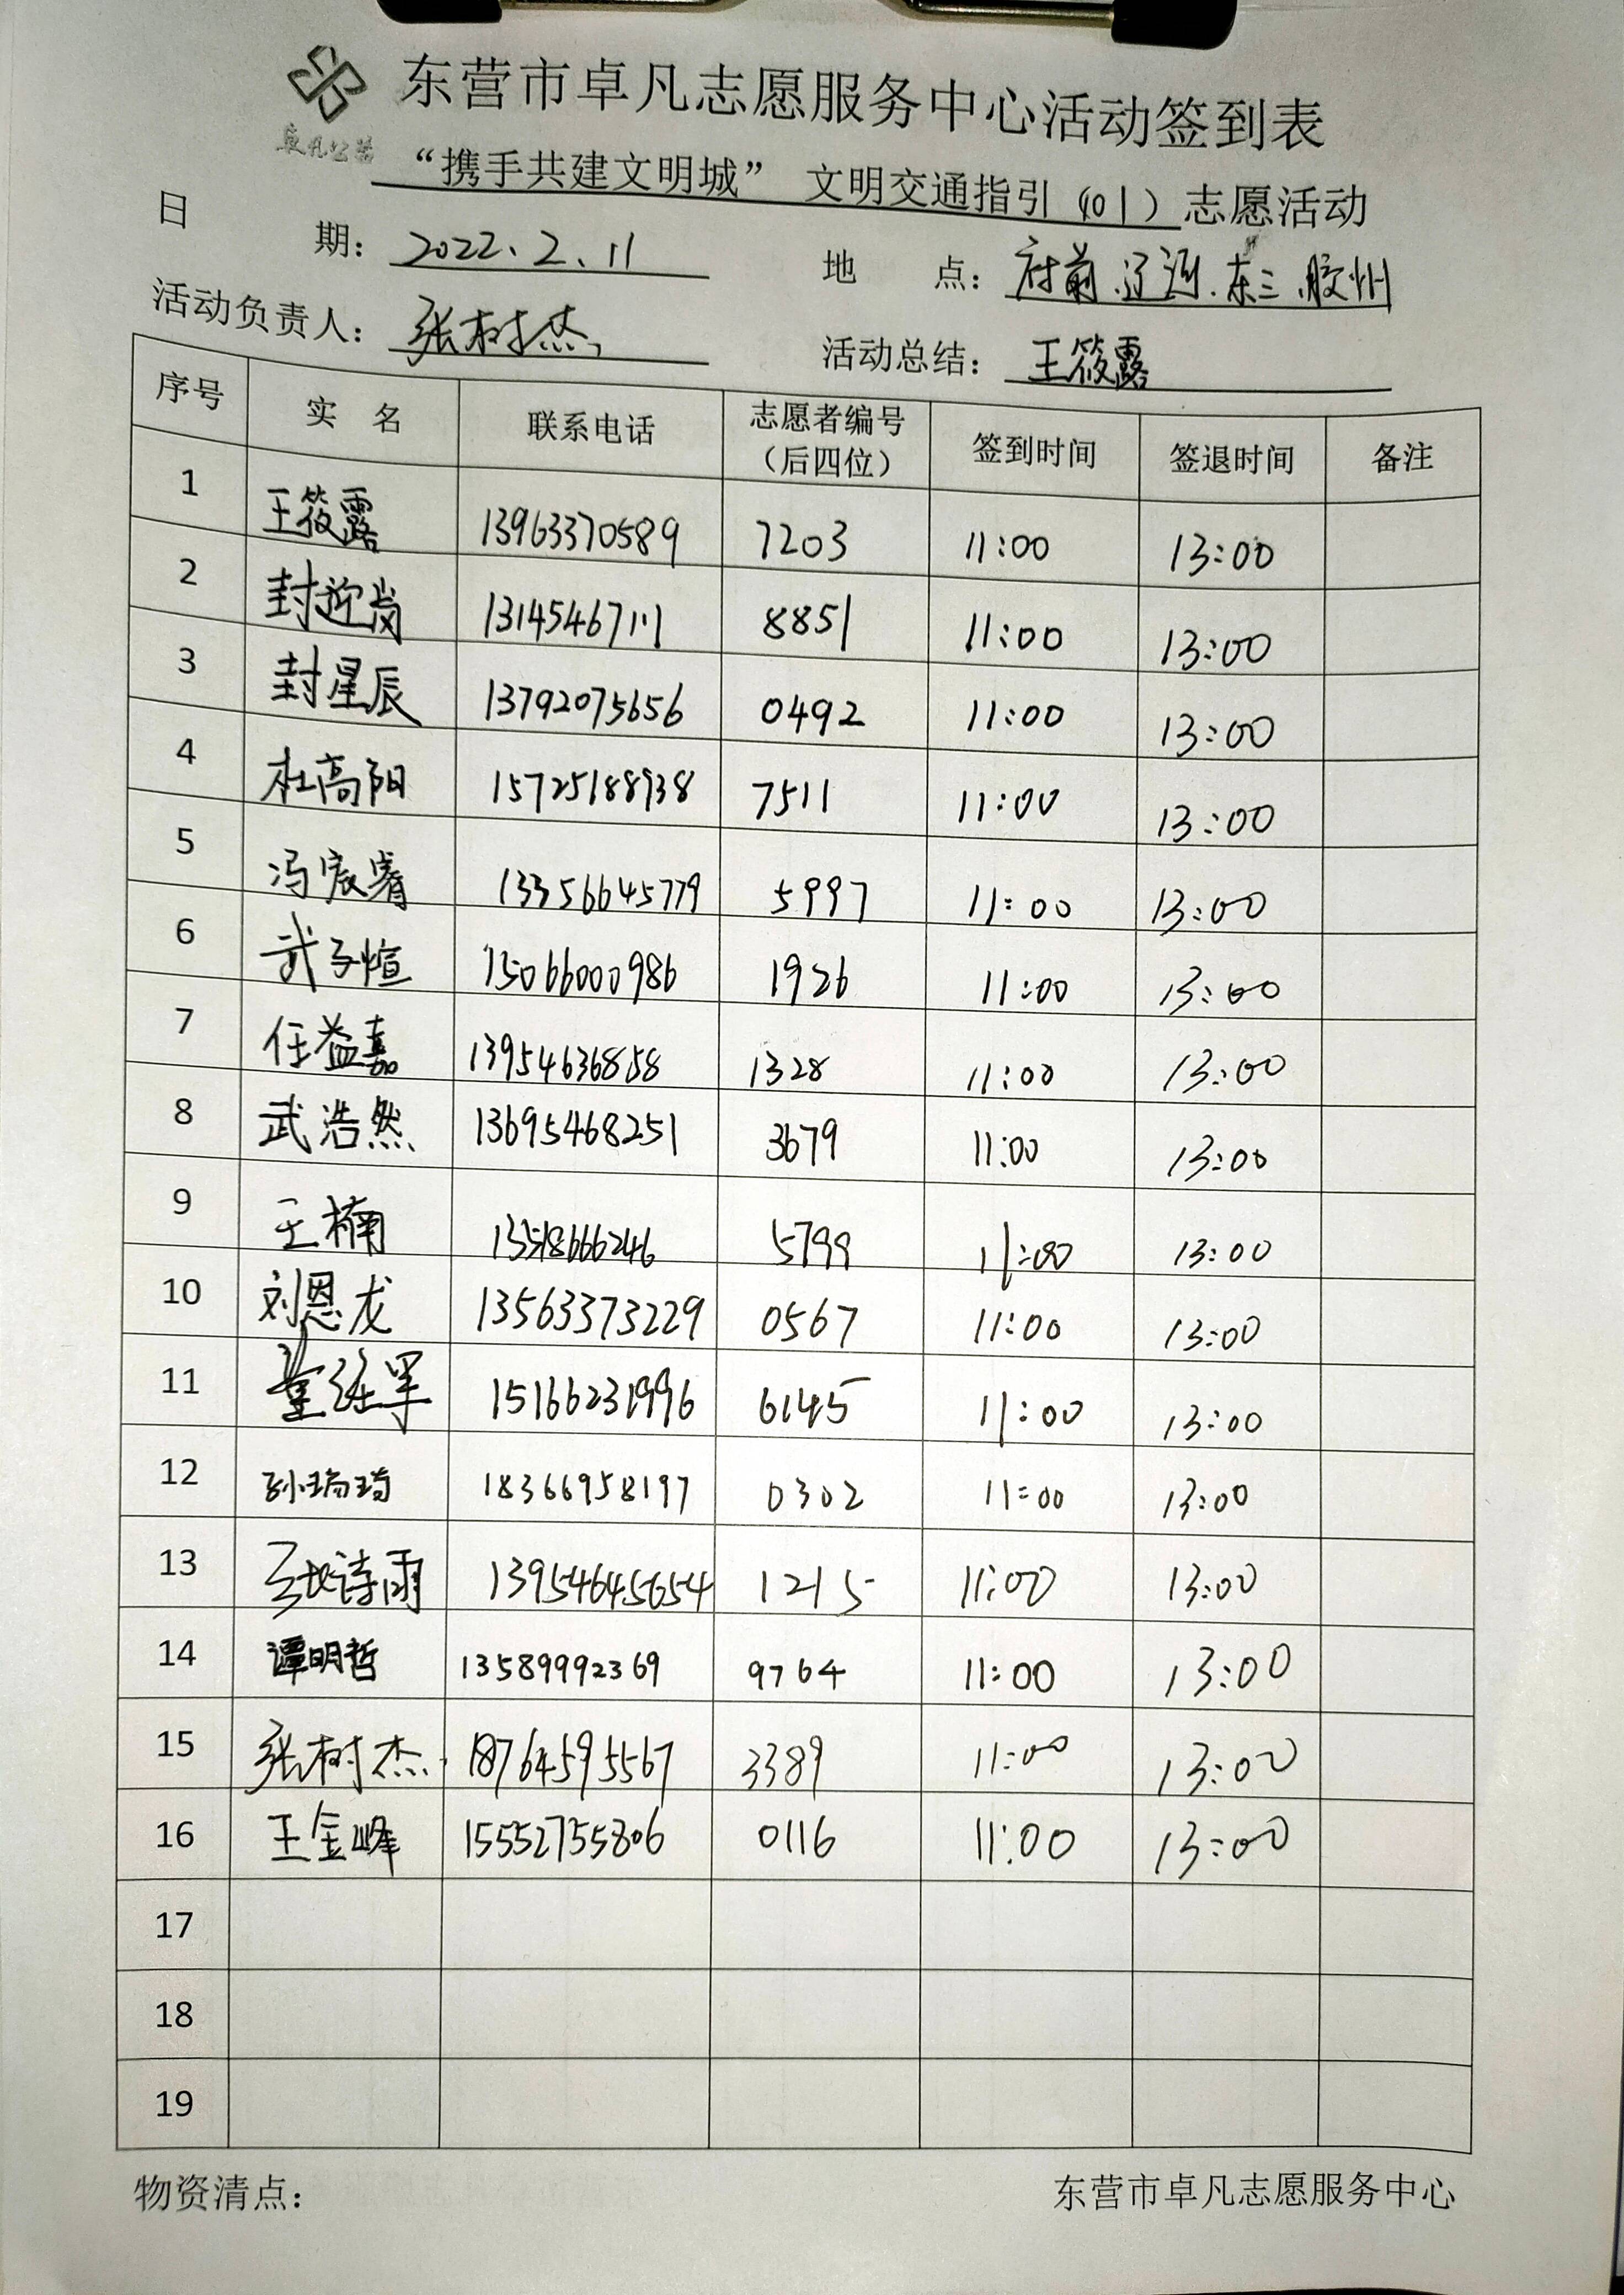 东营市卓凡志愿服务中心活动签到表
卓凡公益
“携手共建文明城” 文明交通指引（101）志愿活动
日 期： 2022.2.11 地 点： 府前.辽河.东三.胶州
活动负责人： 张树杰 活动总结： 王筱露
序号 实 名 联系电话 志愿者编号（后四位） 签到时间 签退时间 备注
1 王筱露 13963370589 7203 11:00 13:00
2 封迎岗 13145467111 8851 11:00 13:00
3 封星辰 13792075656 0492 11:00 13:00
4 杜高阳 15725188938 7511 11:00 13:00
5 冯宸睿 13356645779 5997 11:00 13:00
6 武子煊 15066000986 1926 11:00 13:00
7 任益嘉 13954636858 1328 11:00 13:00
8 武浩然 13695468251 3679 11:00 13:00
9 王楠 5799 11:00 13:00
10 刘恩龙 13563373229 0567 11:00 13:00
11 15166231996 6145 11:00 13:00
12 孙瑞琦 18366958197 0302 11:00 13:00
13 诗雨 13954645654 1215 11:00 13:00
14 谭明哲 13589992369 9764 11:00 13:00
15 张树杰 18764595567 3389 11:00 13:00
16 王金峰 15552755806 0116 11:00 13:00
17
18
19
物资清点： 东营市卓凡志愿服务中心